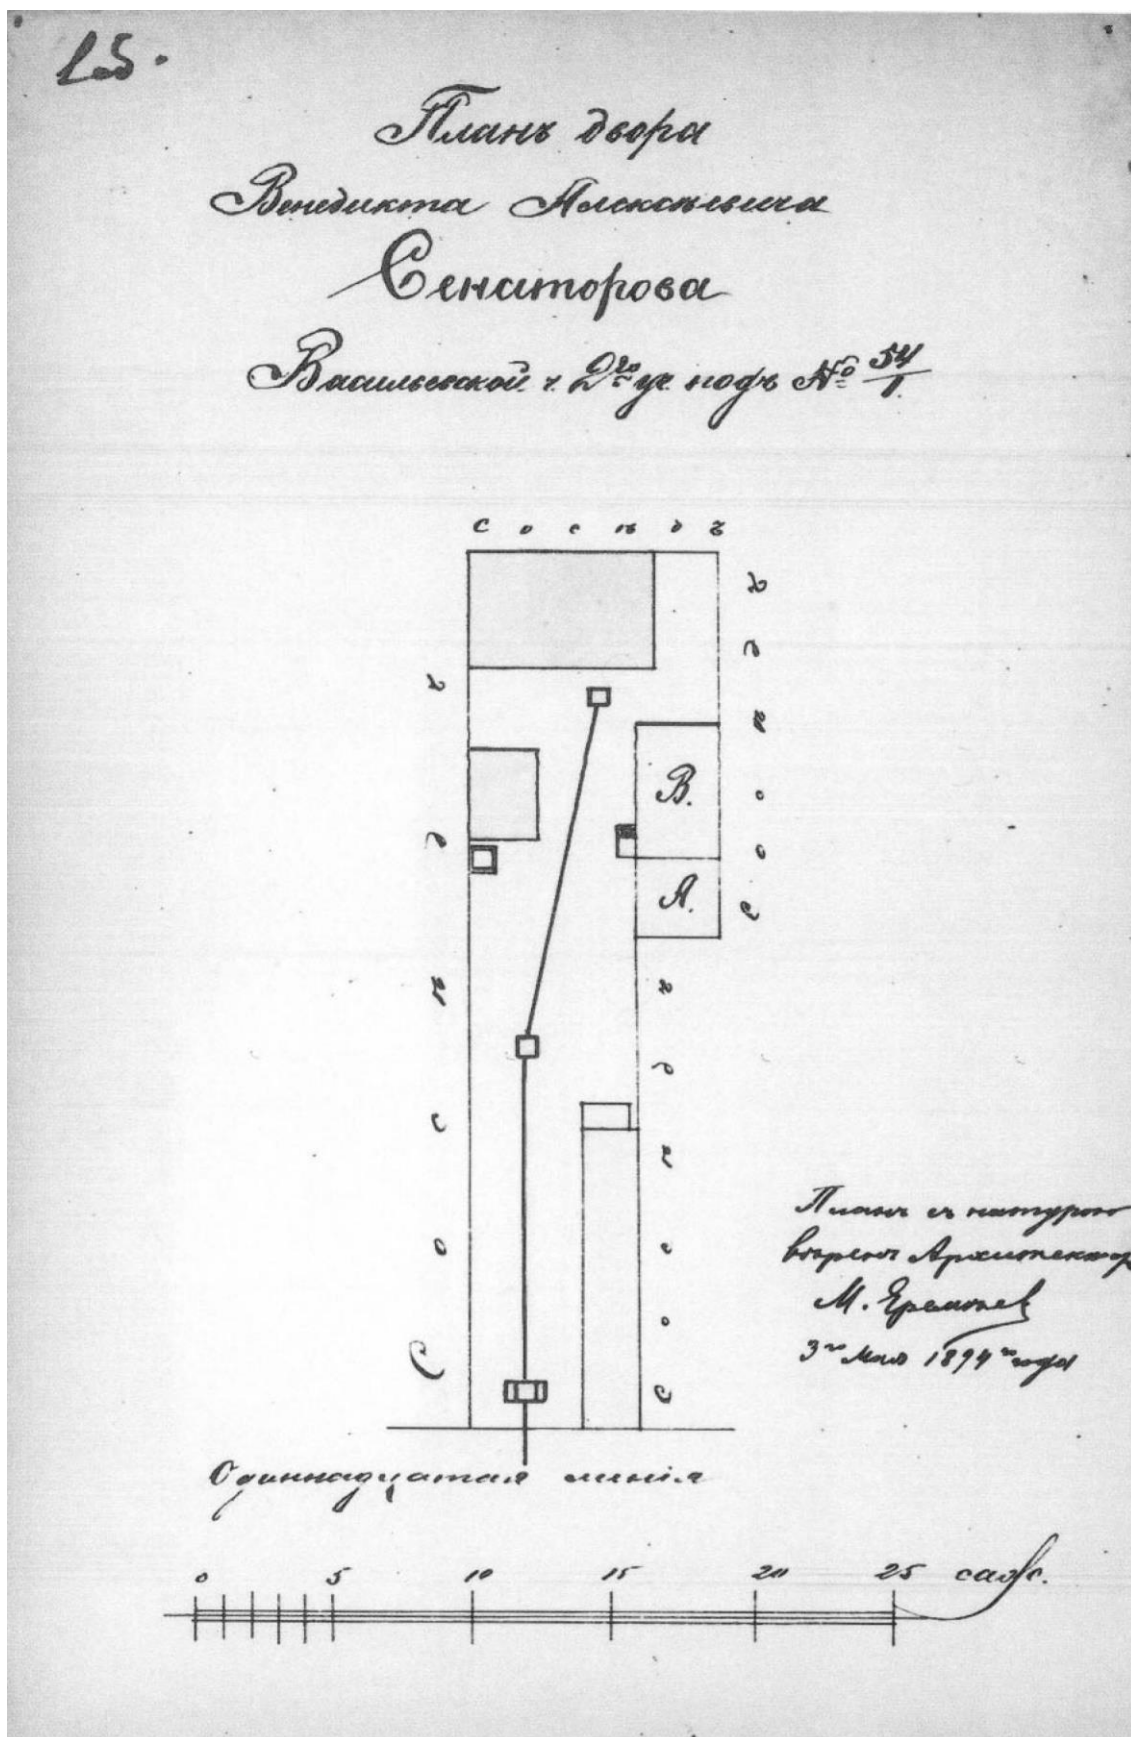 15.
Планъ двора
Венедикта Алексѣевича
Сенаторова
Васильевской ч. 2го уч. подъ № 54/1.
Сосѣдъ
Сосѣдъ
Сосѣдъ
В.
А.
Сосѣдъ
Планъ съ натурою
вѣренъ Архитекторъ
М. Еремѣев
3го Мая 1894го года
Одиннадцатая линія
0 5 10 15 20 25 саж.